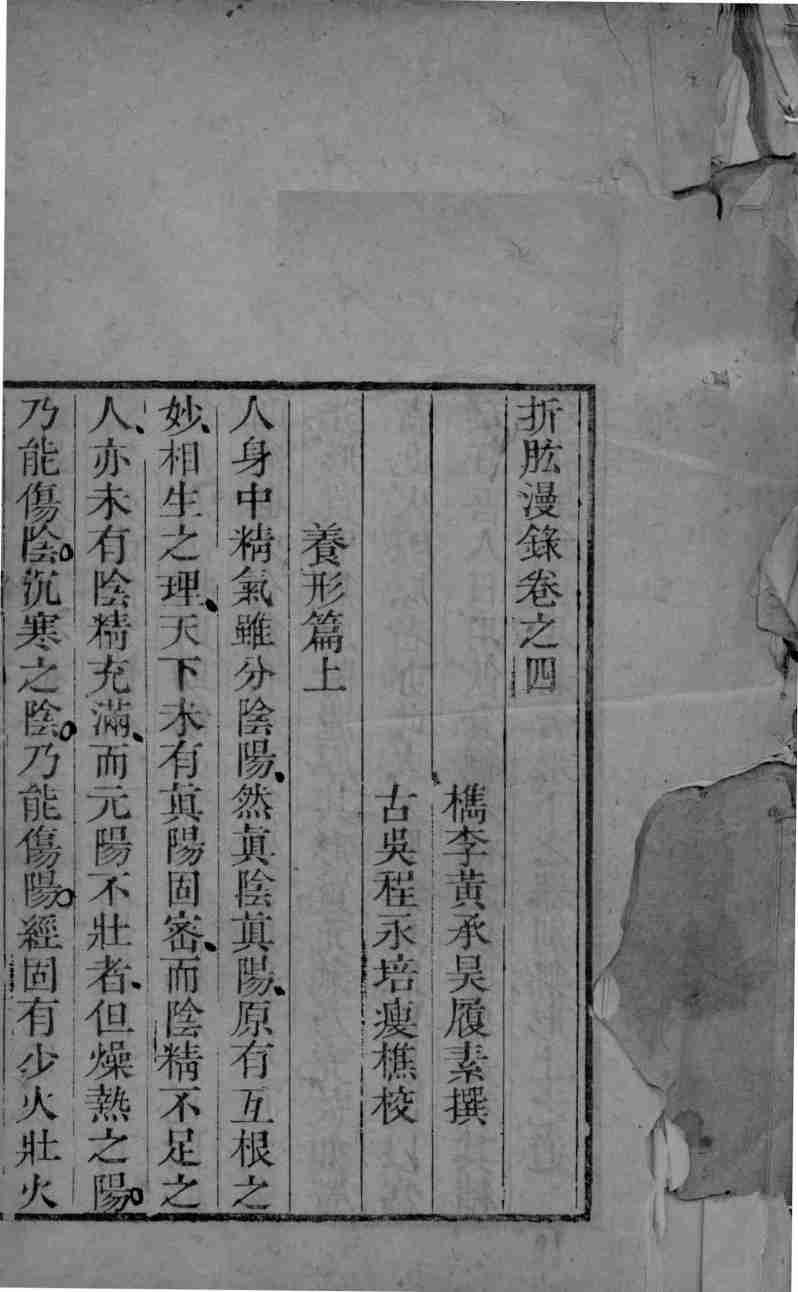 折肱漫錄卷之四
檇李黄承昊履素撰
古吳程永培瘦樵校
養形篇上
人身中精氣雖分陰陽、然眞陰眞陽、原有互根之
妙、相生之理、天下未有眞陽固密、而陰精不足之
人、亦未有陰精充滿、而元陽不壯者、但燥熱之陽。
乃能傷陰。沉寒之陰。乃能傷陽。經固有少火壯火